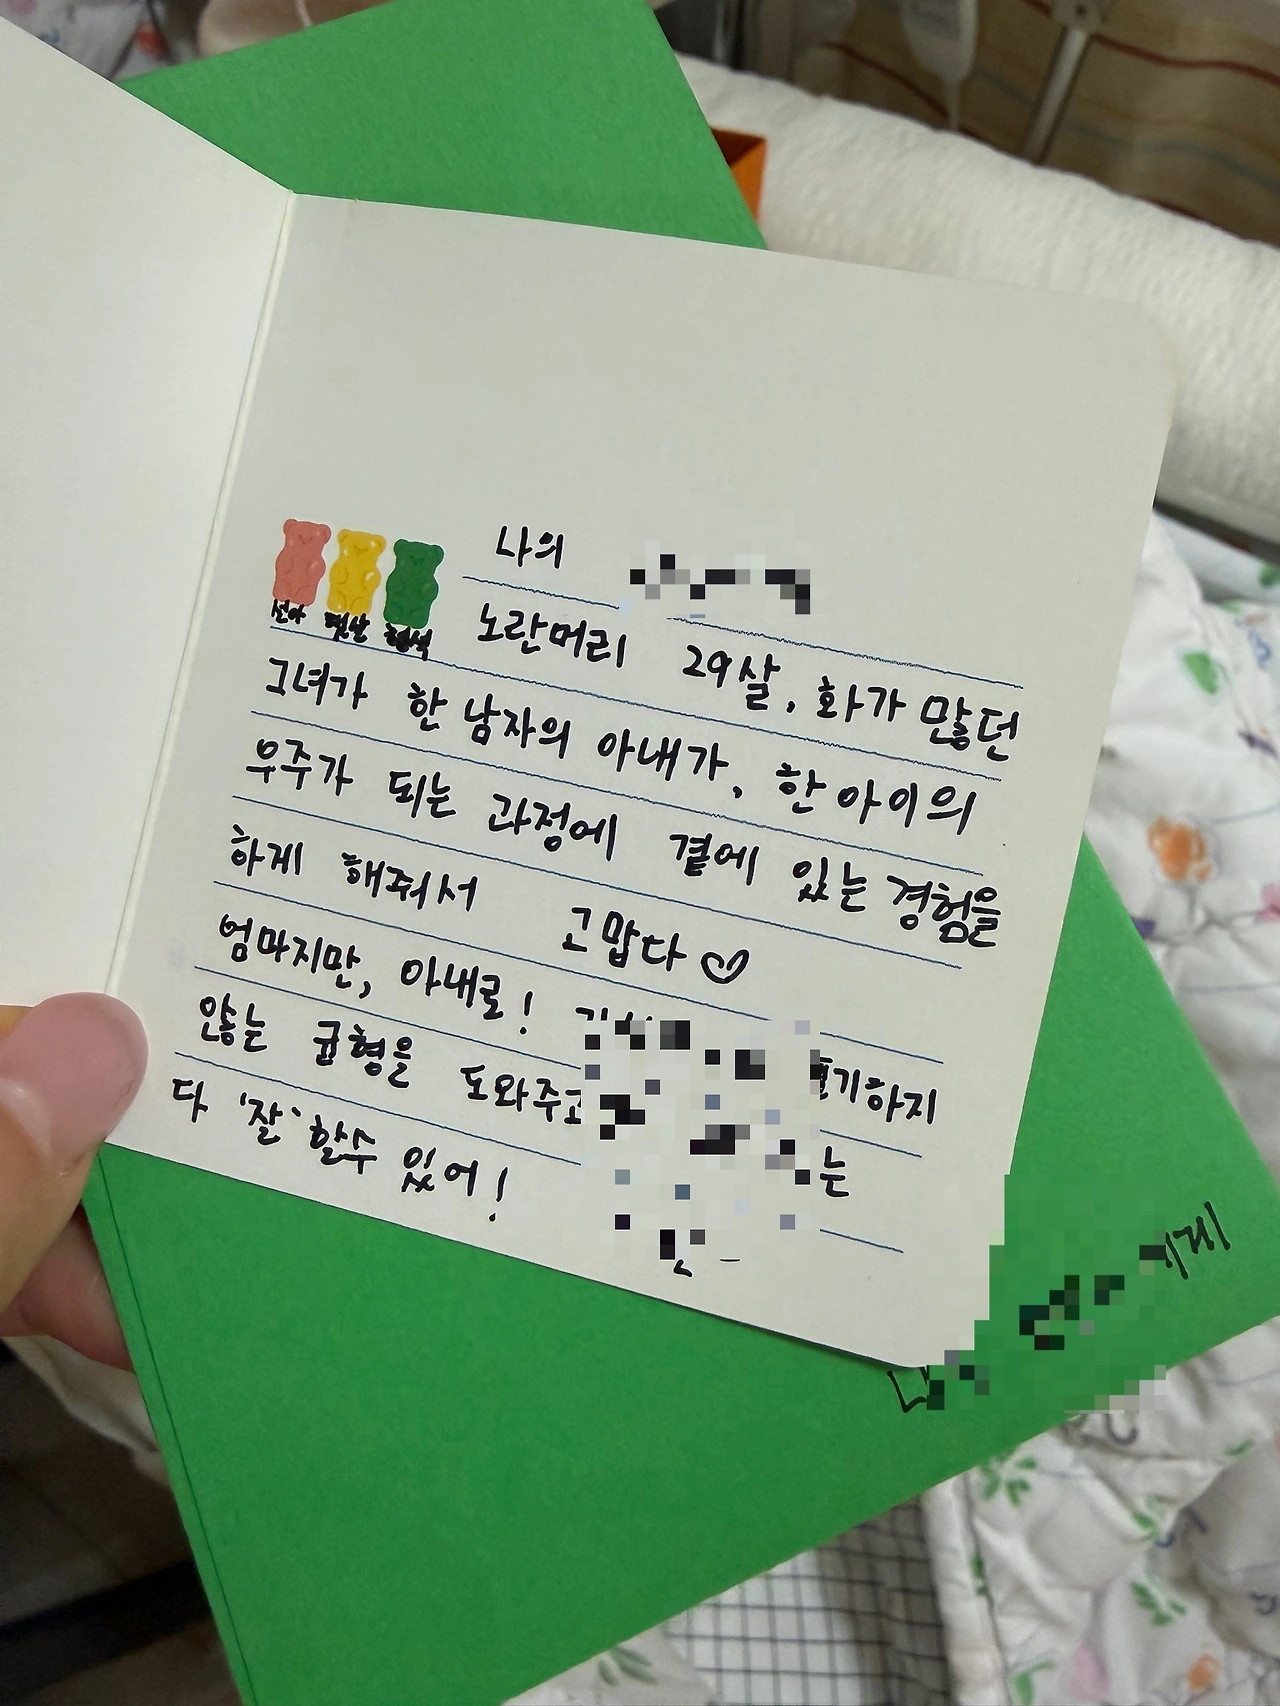 나의
노란머리 29살, 화가 많던
그녀가 한 남자의 아내가, 한 아이의
우주가 되는 과정에 곁에 있는 경험을
하게 해줘서 고맙다♡
엄마지만, 아내로!
않는 균형을 도와주고 는
다 '잘' 할수 있어!
에게